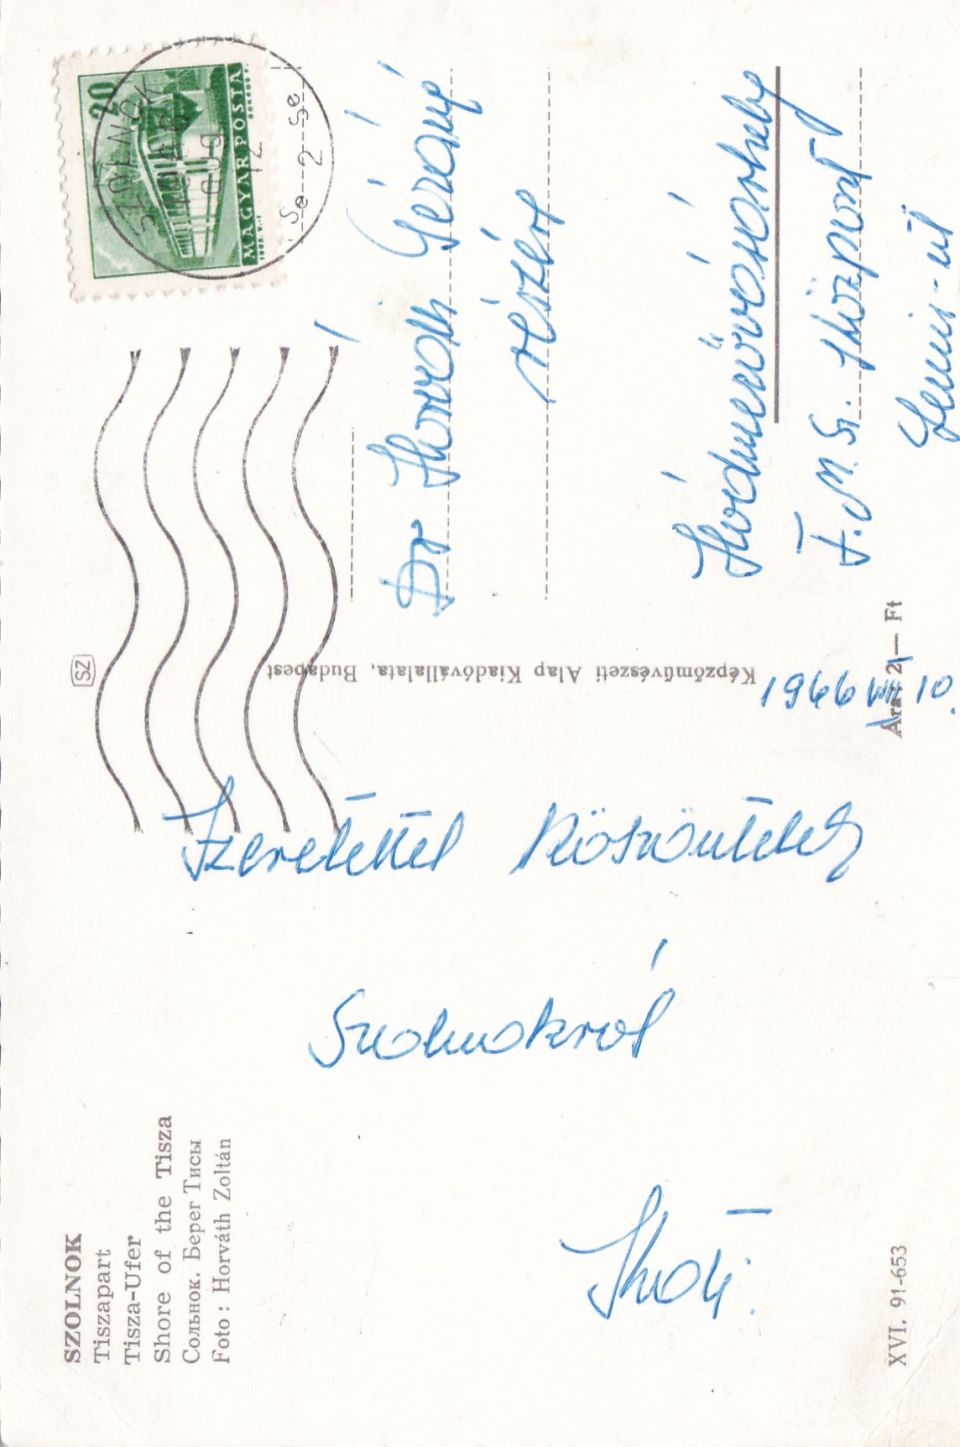 SZOLNOK
Tiszapart
Tisza-Ufer
Shore of the Tisza
Сольнок. Берег Тисы
Foto : Horváth Zoltán
Szeretettel köszöntelek
Szolnokról
XVI. 91-653
1966 VIII 10.
Ára: 2,— Ft
Képzőművészeti Alap Kiadóvállalata, Budapest
SZ
20
MAGYAR POSTA
SZOLNOK
AUG
12
Dr Horváth Gézáné
részére
Hódmezővásárhely
F. M. Sz. Központ
Lenin-út